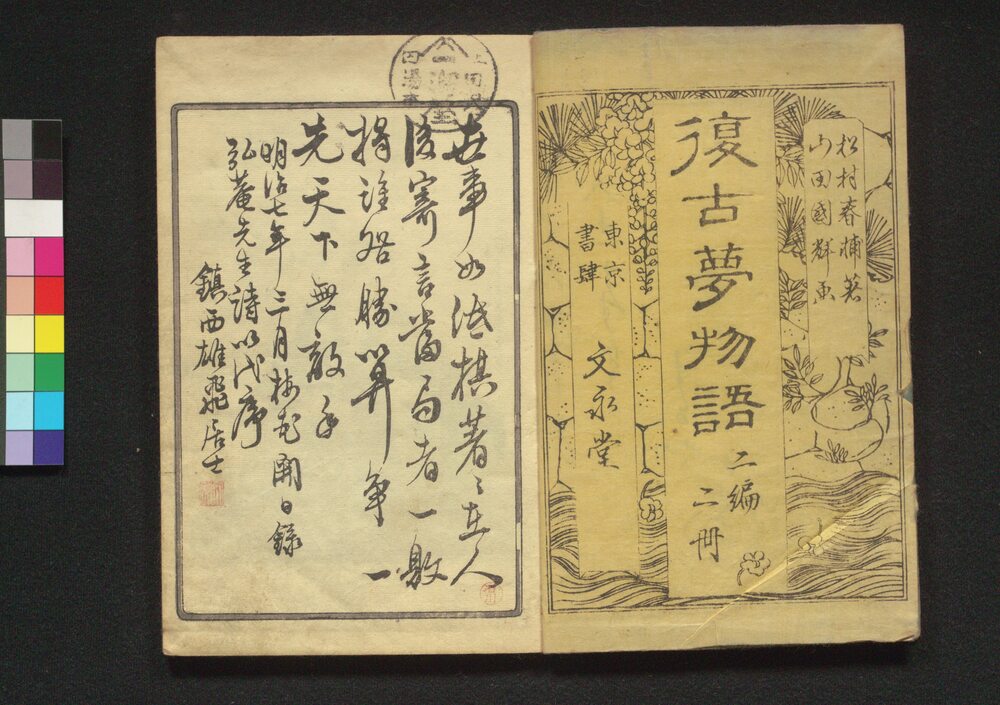 松村春輔著
山田國輝画
復古夢物語
二編
二冊
東京
書肆
文永堂
世事如泜棋著〻在人
後寄言當局者一敗
將誰咎勝算爭一
先天下無敵手
明治七年三月梅花開日録
弘菴先生詩以代序
鎮西雄飛居士